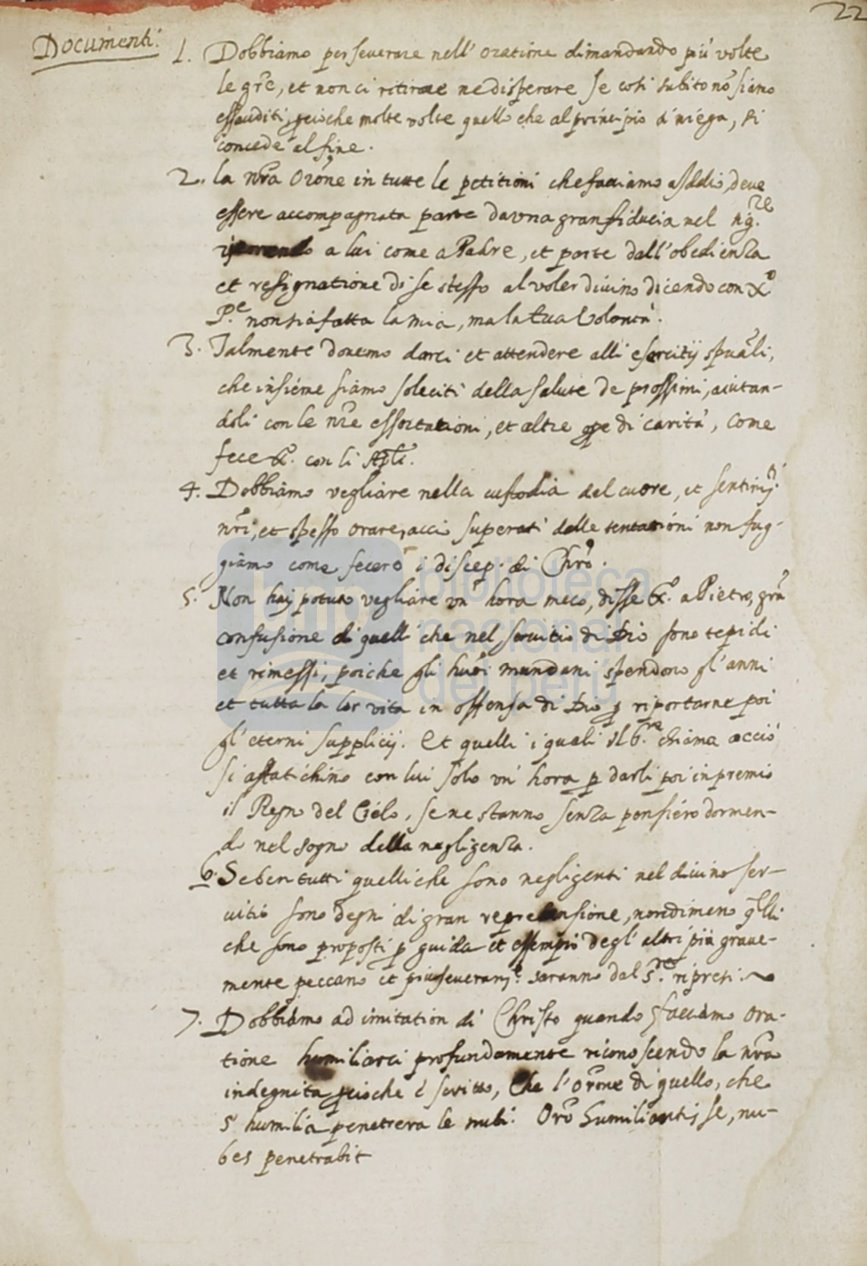 22
Documenti.
1. Dobbiamo perseverare nell'oratione dimandando più volte
le gr̃e, et non ci ritirare ne disperare se così subito nõ siamo
essauditi, poiche molte volte quello che al principio si niega, si
concede al fine.
2. la nr̃a orõne in tutte le petitioni che facciamo a Iddio, deve
essere accompagnata parte da una gran fiducia nel sig.re
a lui come a Padre, et parte dall'obedienza
et resignatione di se stesso al voler divino dicendo con Xº
P.e non sia fatta la mia, ma la tua volontà.
3. Talmente dovemo darci et attendere alli esercitij spũali,
che insieme siamo soleciti della salute de prossimi, aiutan-
doli con le nr̃e essortationi, et altre ope di carità, come
fece X. con li Apl̃i.
4. Dobbiamo vegliare nella custodia del cuore, et sentim.ti
nr̃i, et spesso orare, acciò superati dalle tentationi non fug-
giamo come fecero i discep. di Chrõ.
5. Non hai potuto vegliare un'hora meco, disse X. a Pietro, grã
confusione di quelli che nel servitio di Dio sono tepidi
et rimessi; poiche gli huõi mundani spendono gl'anni
et tutta la lor vita in offensa di Dio p riportarne poi
gl'eterni supplicij. Et quelli i quali il chiama acciò
si affatichino con lui solo un'hora p darli poi in premio
il Regno del Cielo, se ne stanno senza pensiero dormen-
do nel sogno della negligenza.
6. Se ben tutti quelli che sono negligenti nel divino ser-
vitio sono degni di gran reprensione, nondimeno qlli
che sono proposti p guida et essempio degl'altri più grave-
mente peccano et più severam.te saranno dal S.re ripresi.
7. Dobbiamo ad imitation di Christo quando facciamo ora-
tione humiliarci profundamente riconoscendo la nr̃a
indegnità poiche è scritto, Che l'orõne di quello, che
s'humilia penetrera le nubi. Orõ humiliantis se, nu-
bes penetrabit
biblioteca
nacional
del perú